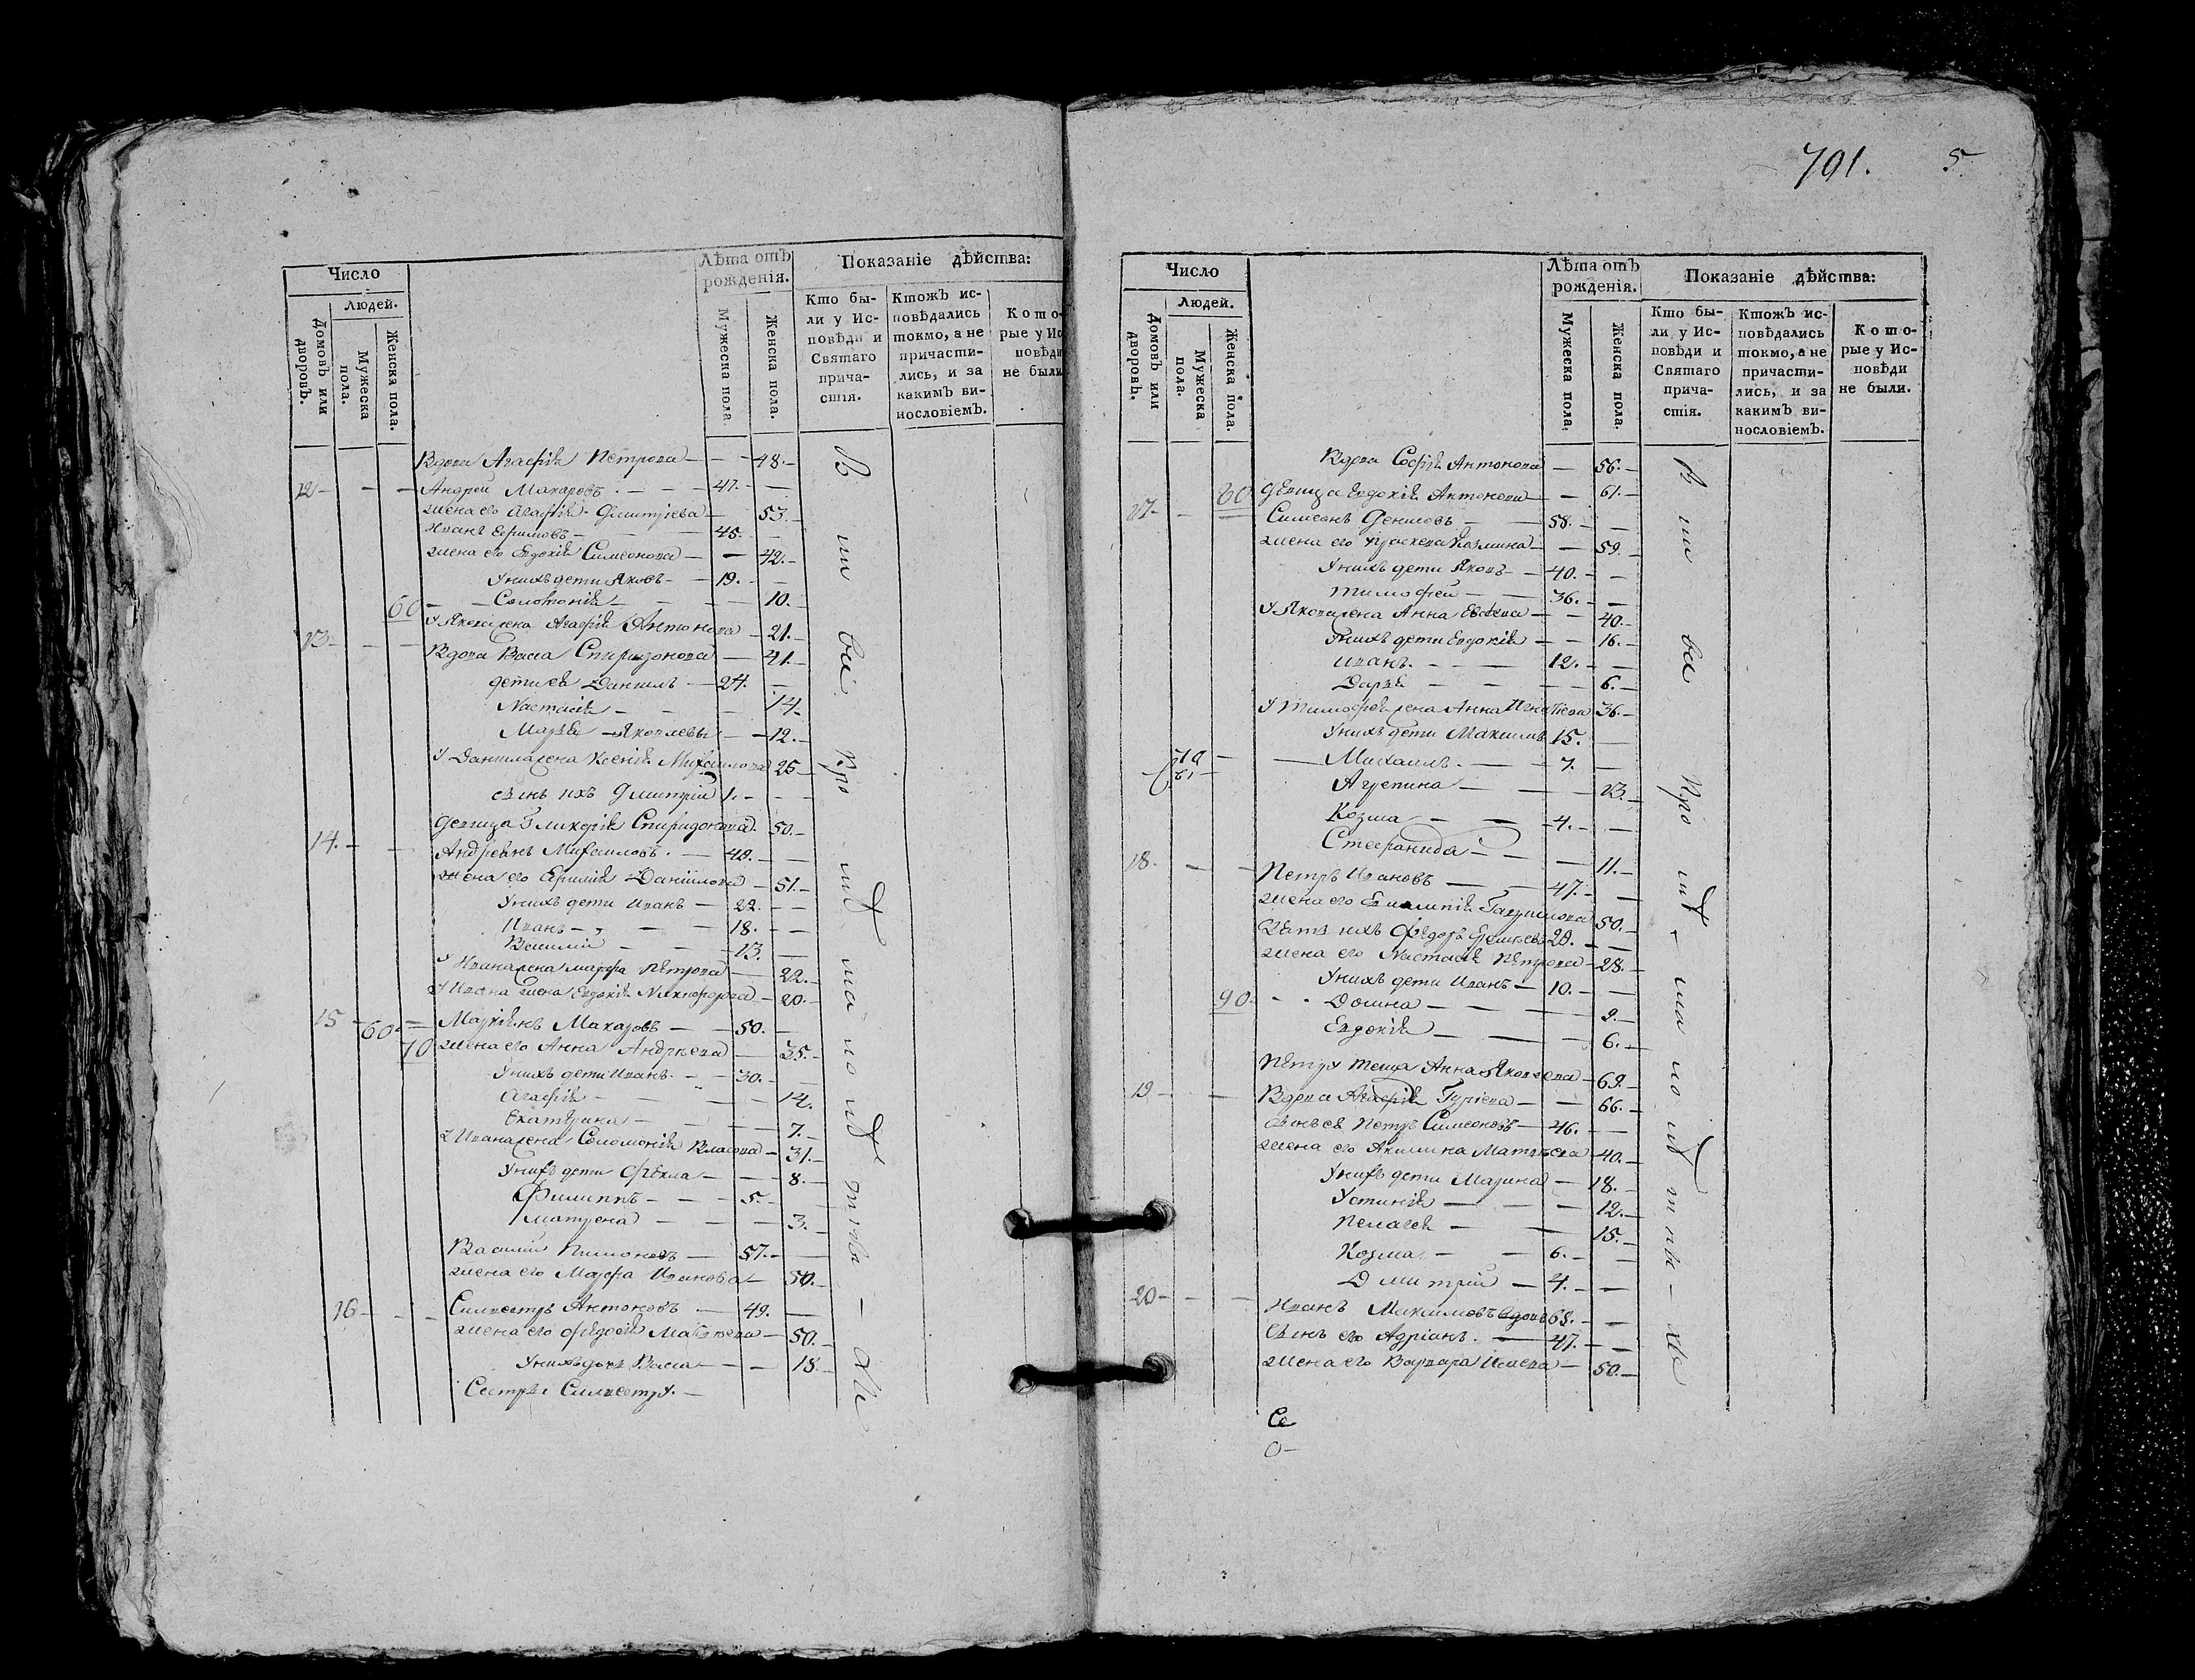 Число
Людей.
Домовъ или дворовъ.
Мужеска пола.
Женска пола.
Лѣта отъ рожденія.
Мужеска пола
Женска пола.
Показаніе дѣйства:
Кто бы-
ли у Ис-
повѣди и
Святаго
прича-
стія.
Ктожъ ис-
повѣдались
токмо, а не
причасти-
лись, и за
какимъ ви-
нословіемъ.
Кото-
рые у Ис
повѣди
не были
Вдова Агафія Петрова 48.
12 Андрей Макаровъ 47.
жена его Агафія Дмитріева 53.
Иванъ Ефимовъ 45.
жена его Евдокія Симеонова 42.
У нихъ дети Яковъ 19.
Соломонія 10.
60 У Якова жена Агафія Антонова 21.
13 Вдова Васса Спиридонова 41.
дети ея Даніилъ 24.
Настасія 14.
Марья Яковлевы 12.
У Даніила жена Ксенія Михайлова 25
сынъ ихъ Дмитрій 1.
Девица Гликерія Спиридонова 50.
14. Андреянъ Михайловъ 49.
жена его Ефимія Даніилова 51.
У нихъ дети Иванъ 22.
Иванъ 18.
Василій 13.
У Ивана жена Марфа Петрова 22.
У Ивана жена Евдокія Никифорова 20.
15 60 Маркіянъ Макаровъ 50.
70 жена его Анна Андреева 35.
У нихъ дети Иванъ 30.
Агафія 14.
Екатерина 7.
У Ивана жена Соломонія Власова 31.
У нихъ дети Фекла 8.
Филиппъ 5.
Матрена 3.
Василій Пимоновъ 57.
жена его Марфа Иванова 50.
16 Силвестръ Антоновъ 49.
жена его Федосія Матвеева 50.
У нихъ дочь Васса 18
Сестры Силвестру.
791. 5
Число
Людей.
Домовъ или дворовъ.
Мужеска пола.
Женска пола.
Лѣта отъ рожденія.
Мужеска пола.
Женска пола.
Показаніе дѣйства:
Кто бы-
ли у Ис-
повѣди и
Святаго
прича-
стія.
Ктожъ ис-
повѣдались
токмо, а не
причасти-
лись, и за
какимъ ви-
нословіемъ.
Кото-
рые у Ис-
повѣди
не были.
Вдова Софія Антонова 56.
80 Девица Евдокія Антонова 61.
17 Симеонъ Денисовъ 58.
жена его Праскева Козмина 59.
У нихъ дети Яковъ 40.
Тимофей 36.
У Якова жена Анна 40.
У нихъ дети Евдокія 16.
Иванъ 12.
Дарья 6.
У Тимофея жена Анна Игнатіева 36.
У нихъ дети Максимъ 15.
70 Михаилъ 7.
Агрепина 13.
Козма 4.
Стефанида 11.
18 Петръ Ивановъ 47.
жена его 50.
Зять ихъ Федоръ 29.
жена его Настасія Петрова 28.
У нихъ дети Иванъ 10.
90 Домна 9.
Евдокія 6.
Петру теща Анна Яковлева 69.
19 Вдова Агафія Гуріева 66.
Сынъ ея Петръ Симеоновъ 46.
жена его Акилина Матвеева 40.
У нихъ дети Марина 18.
Устинія 12.
Пелагея 15.
Козма 6.
Дмитрій 4.
20 Иванъ Максимовъ вдовъ 68.
Сынъ его Адріанъ 47.
жена его Варвара 50.
Се